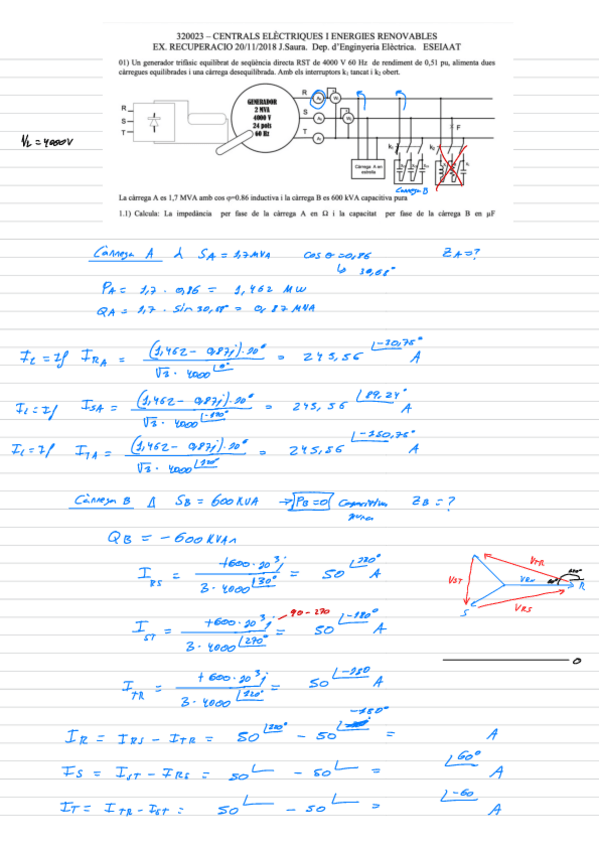 320023 – CENTRALS ELÈCTRIQUES I ENERGIES RENOVABLES
EX. RECUPERACIO 20/11/2018 J.Saura. Dep. d'Enginyeria Elèctrica. ESEIAAT
01) Un generador trifàsic equilibrat de seqüència directa RST de 4000 V 60 Hz de rendiment de 0,51 pu, alimenta dues
càrregues equilibrades i una càrrega desequilibrada. Amb els interruptors k₁ tancat i k₂ obert.
GENERADOR
2 MVA
4000 V
24 pols
60 Hz
R
S
T
R
S
T
F
k₁
k₂
Càrrega A en
estrella
Càrrega B
VL = 4000V
La càrrega A es 1,7 MVA amb cos φ=0.86 inductiva i la càrrega B es 600 kVA capacitiva pura
1.1) Calcula: La impedància per fase de la càrrega A en Ω i la capacitat per fase de la càrrega B en μF
Càrrega A ⅄ SA = 1,7 MVA cos θ = 0,86 ZA = ?
↳ 30,68°
PA = 1,7 · 0,86 = 1,462 MW
QA = 1,7 · sin 30,68° = 0,87 MVA
IL = If IRA = (1,462 - 0,87j)·10⁶ / √3 · 4000 = 245,56 ∠-30,75° A
IL = If ISA = (1,462 - 0,87j)·10⁶ / √3 · 4000 = 245,56 ∠89,24° A
IL = If ITA = (1,462 - 0,87j)·10⁶ / √3 · 4000 = 245,56 ∠-150,75° A
Càrrega B Δ SB = 600 KVA → PB = 0 Capacitiva pura ZB = ?
QB = -600 KVAr
IRS = +600·10³j / 3·4000 ∠30° = 50 A
IST = +600·10³j / 3·4000 ∠270° = 50 ∠-180° A
90-270
ITR = +600·10³j / 3·4000 = 50 A
VTR
VST
VRS
S
R
IR = IRS - ITR = 50 - 50 = A
IS = IST - IRS = 50∠ - 50∠ = ∠60° A
IT = ITR - IST = 50∠ - 50∠ = ∠-60 A